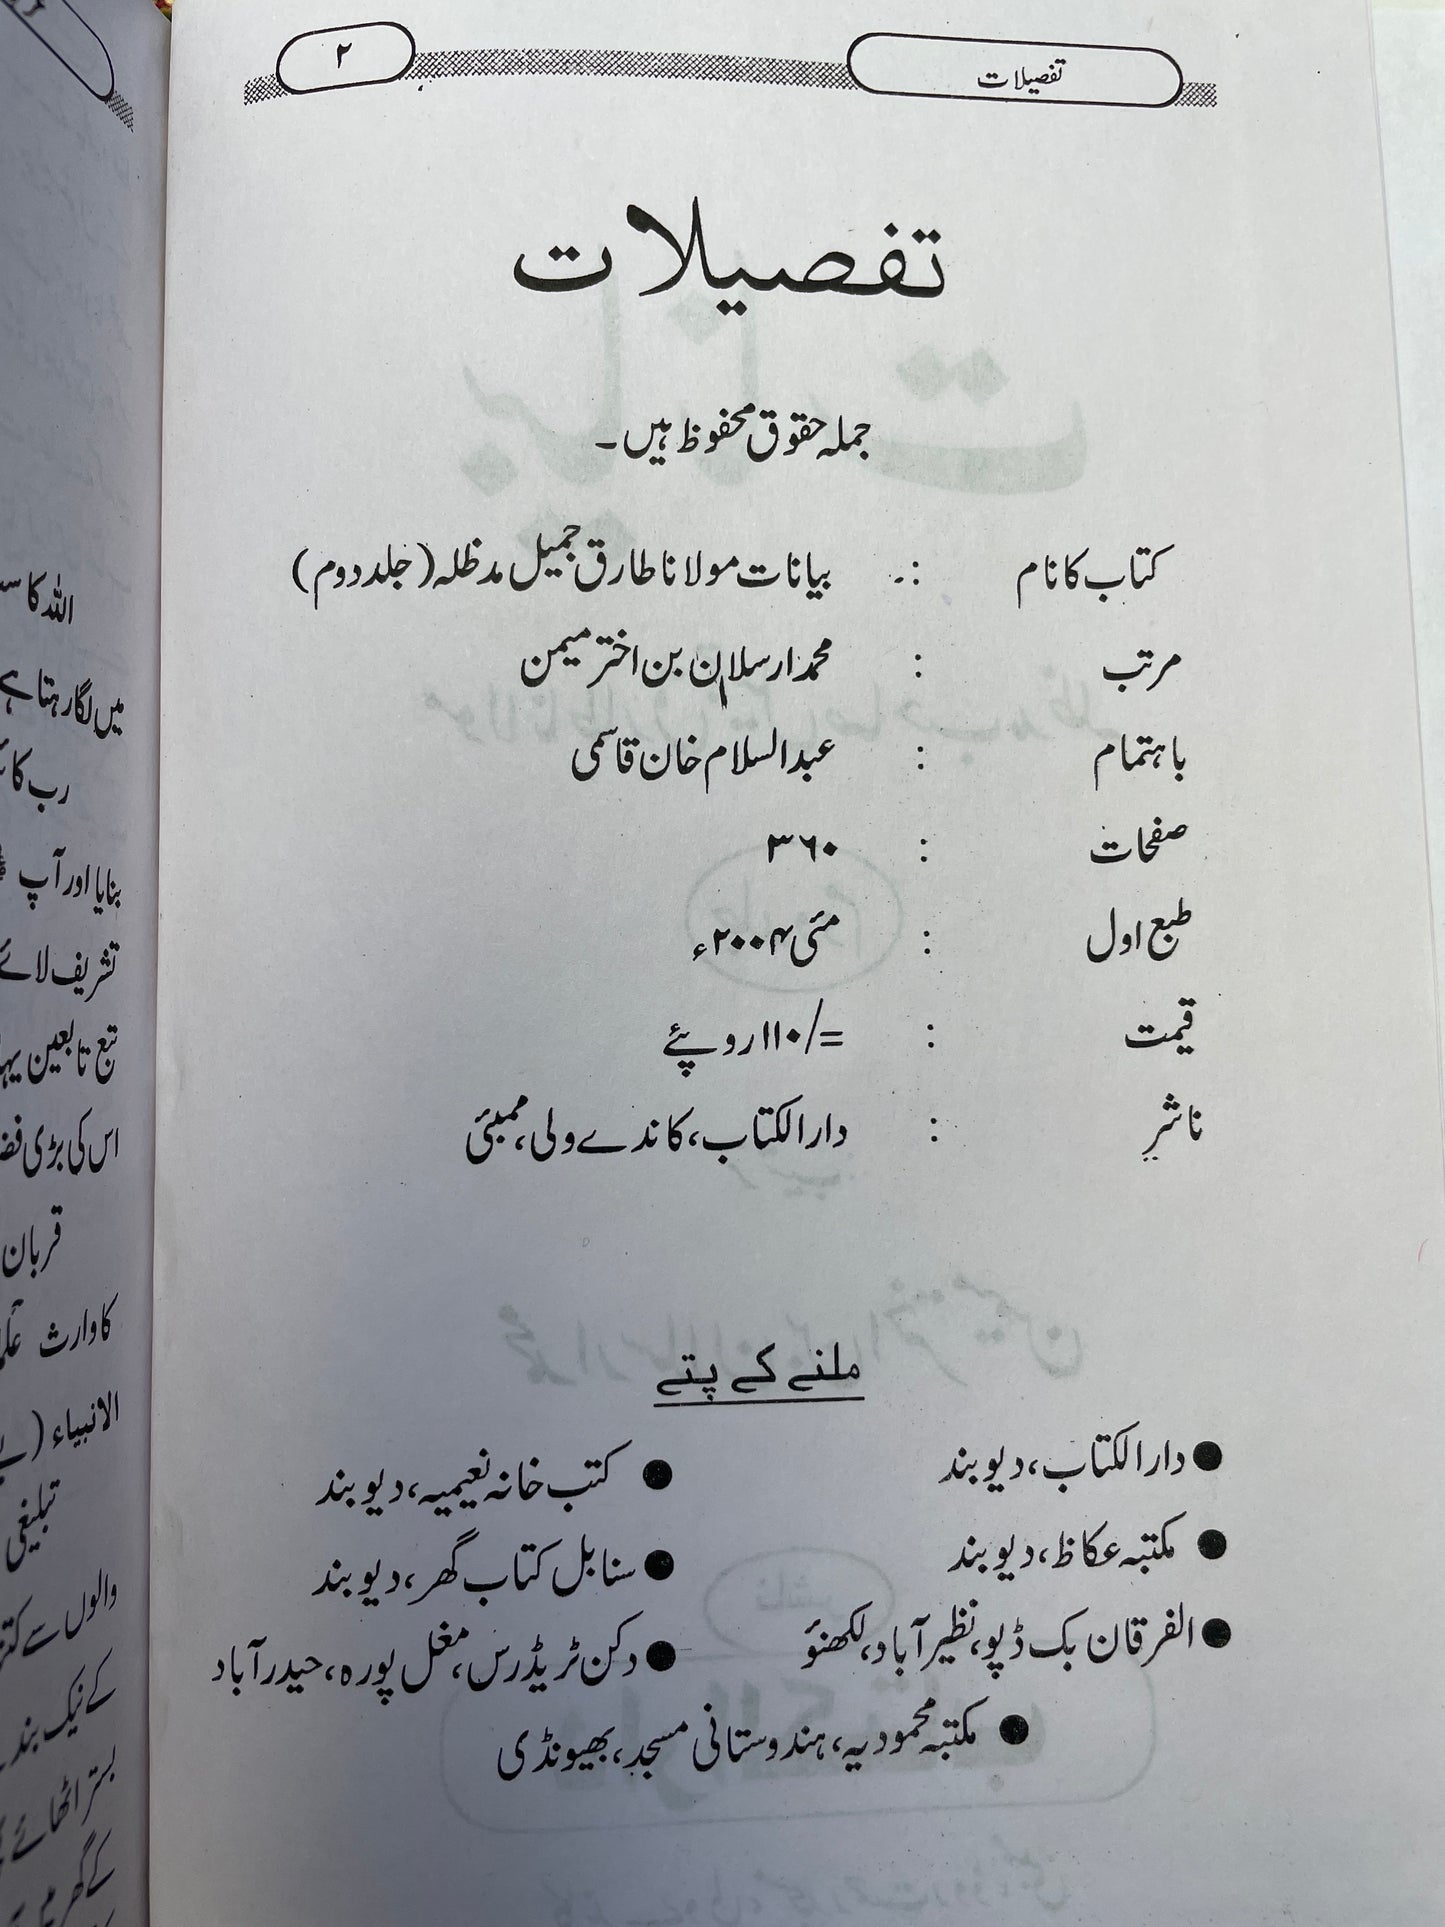 تفصیلات
۲
تفصیلات
جملہ حقوق محفوظ ہیں۔
کتاب کا نام :۔ بیانات مولانا طارق جمیل مدظلہ (جلد دوم)
مرتب : محمد ارسلان بن اختر میمن
باہتمام : عبدالسلام خان قاسمی
صفحات : ۳۶۰
طبع اول : مئی ۲۰۰۴ء
قیمت : =/۱۱۰روپئے
ناشر : دارالکتاب، کاندے ولی، ممبئی
ملنے کے پتے
● دارالکتاب، دیوبند ● کتب خانہ نعیمیہ، دیوبند
● مکتبہ عکاظ، دیوبند ● سنابل کتاب گھر، دیوبند
● الفرقان بک ڈپو، نظیرآباد، لکھنؤ ● دکن ٹریڈرس، مغل پورہ، حیدرآباد
● مکتبہ محمودیہ، ہندوستانی مسجد، بھیونڈی
اللہ کا
میں لگا رہتا ہے
رب کا
بنایا اور آپ
تشریف لائے
تبع تابعین
اس کی بڑی
قربان
کا وارث
الانبیاء
تبلیغی
والوں سے
کے نیک
بستر اٹھائے
کے گھر